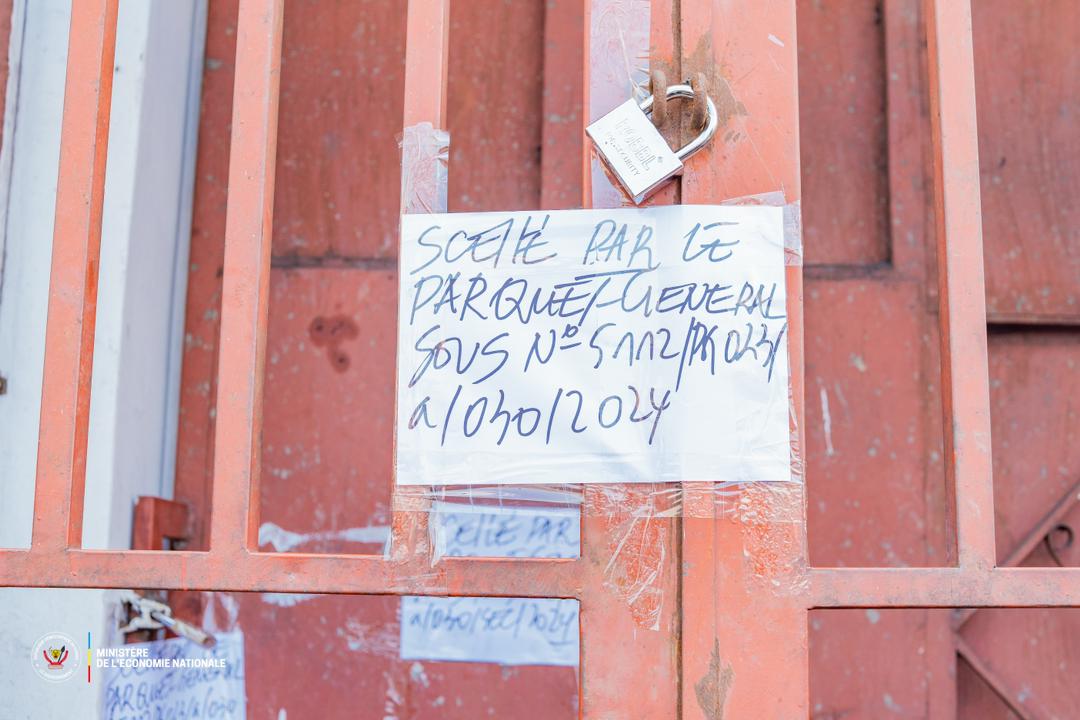 SCELLÉ PAR LE
PARQUET-GENERAL
SOUS Nº 5112/PG023/
a/030/2024
SCELLÉ PAR
a/030/SEC/2024
PARQUET-GENERAL
SECURITY
MINISTÈRE
DE L'ECONOMIE NATIONALE